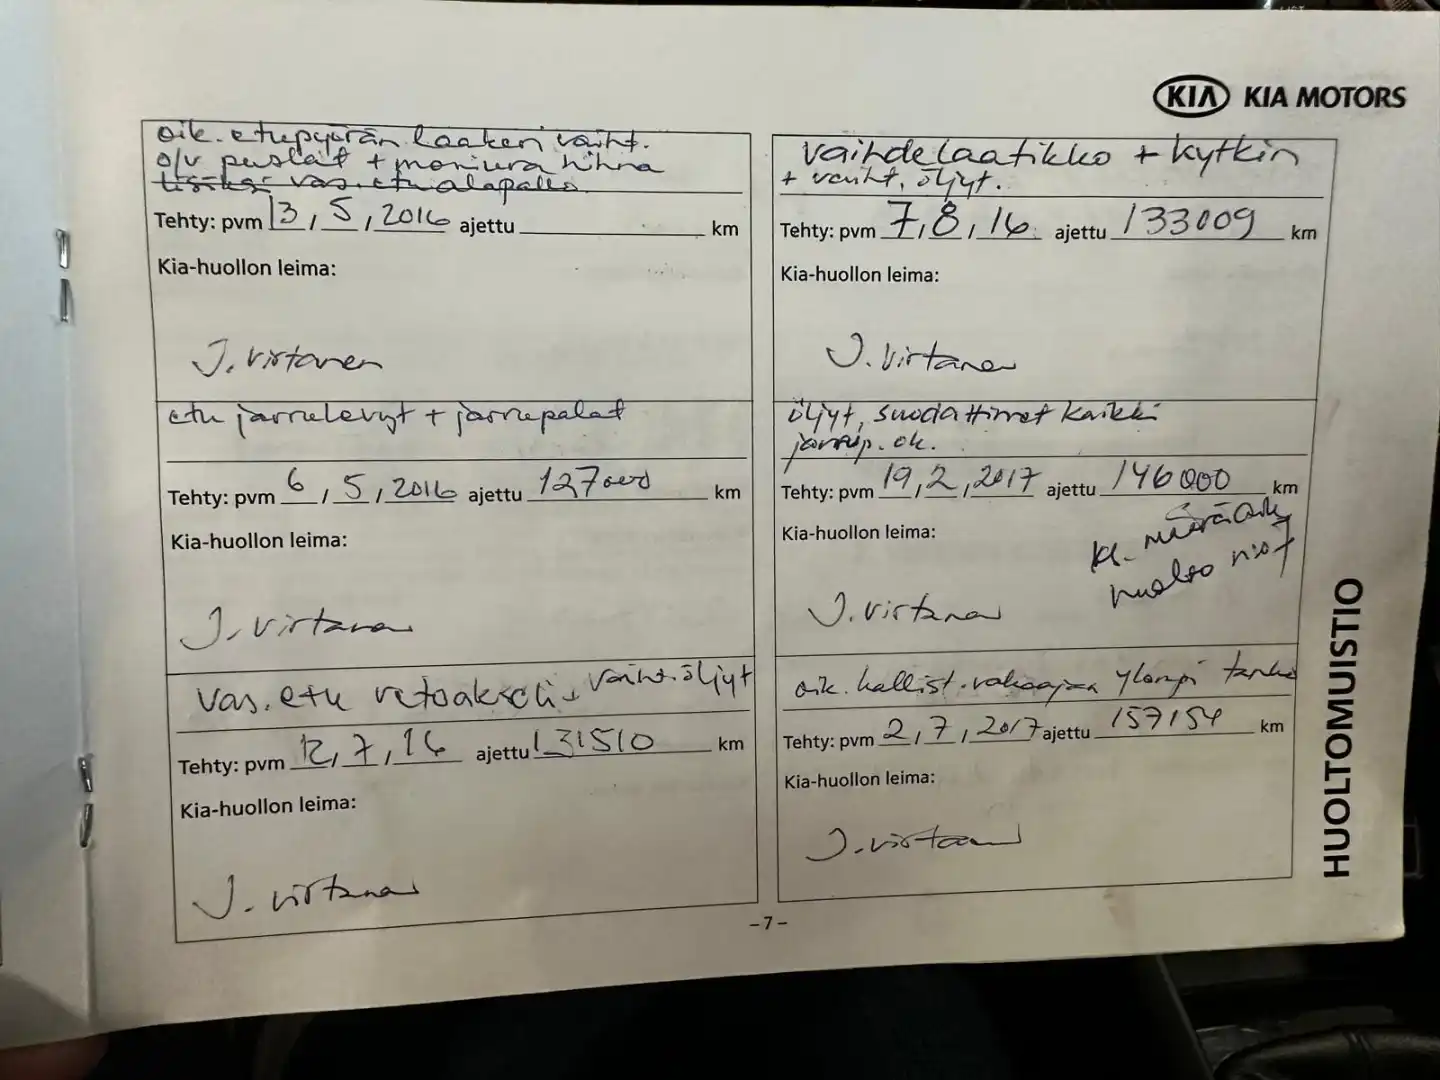 KIA KIA MOTORS
oik. etupyörän laakeri vaiht.
o/v puslat + moniura hihna
lisäksi vas. etu alapallo
Tehty: pvm 13, 5, 2016 ajettu km
Kia-huollon leima:
J. Virtanen
etu jarrulevyt + jarrupalat
Tehty: pvm 6, 5, 2016 ajettu 127000 km
Kia-huollon leima:
J. Virtanen
vas. etu vetoakseli + vaiht. öljyt
Tehty: pvm 12, 7, 16 ajettu 131510 km
Kia-huollon leima:
J. Virtanen
vaihdelaatikko + kytkin
+ vaiht. öljyt.
Tehty: pvm 7, 8, 16 ajettu 133009 km
Kia-huollon leima:
J. Virtanen
öljyt, suodattimet kaikki
jarrup. ok.
Tehty: pvm 19, 2, 2017 ajettu 146000 km
Kia-huollon leima:
kl. määräaik
huolto
J. Virtanen
oik. kallist. vakaajan ylempi tanko
Tehty: pvm 2, 7, 2017 ajettu 157154 km
Kia-huollon leima:
J. Virtanen
HUOLTOMUISTIO
-7-